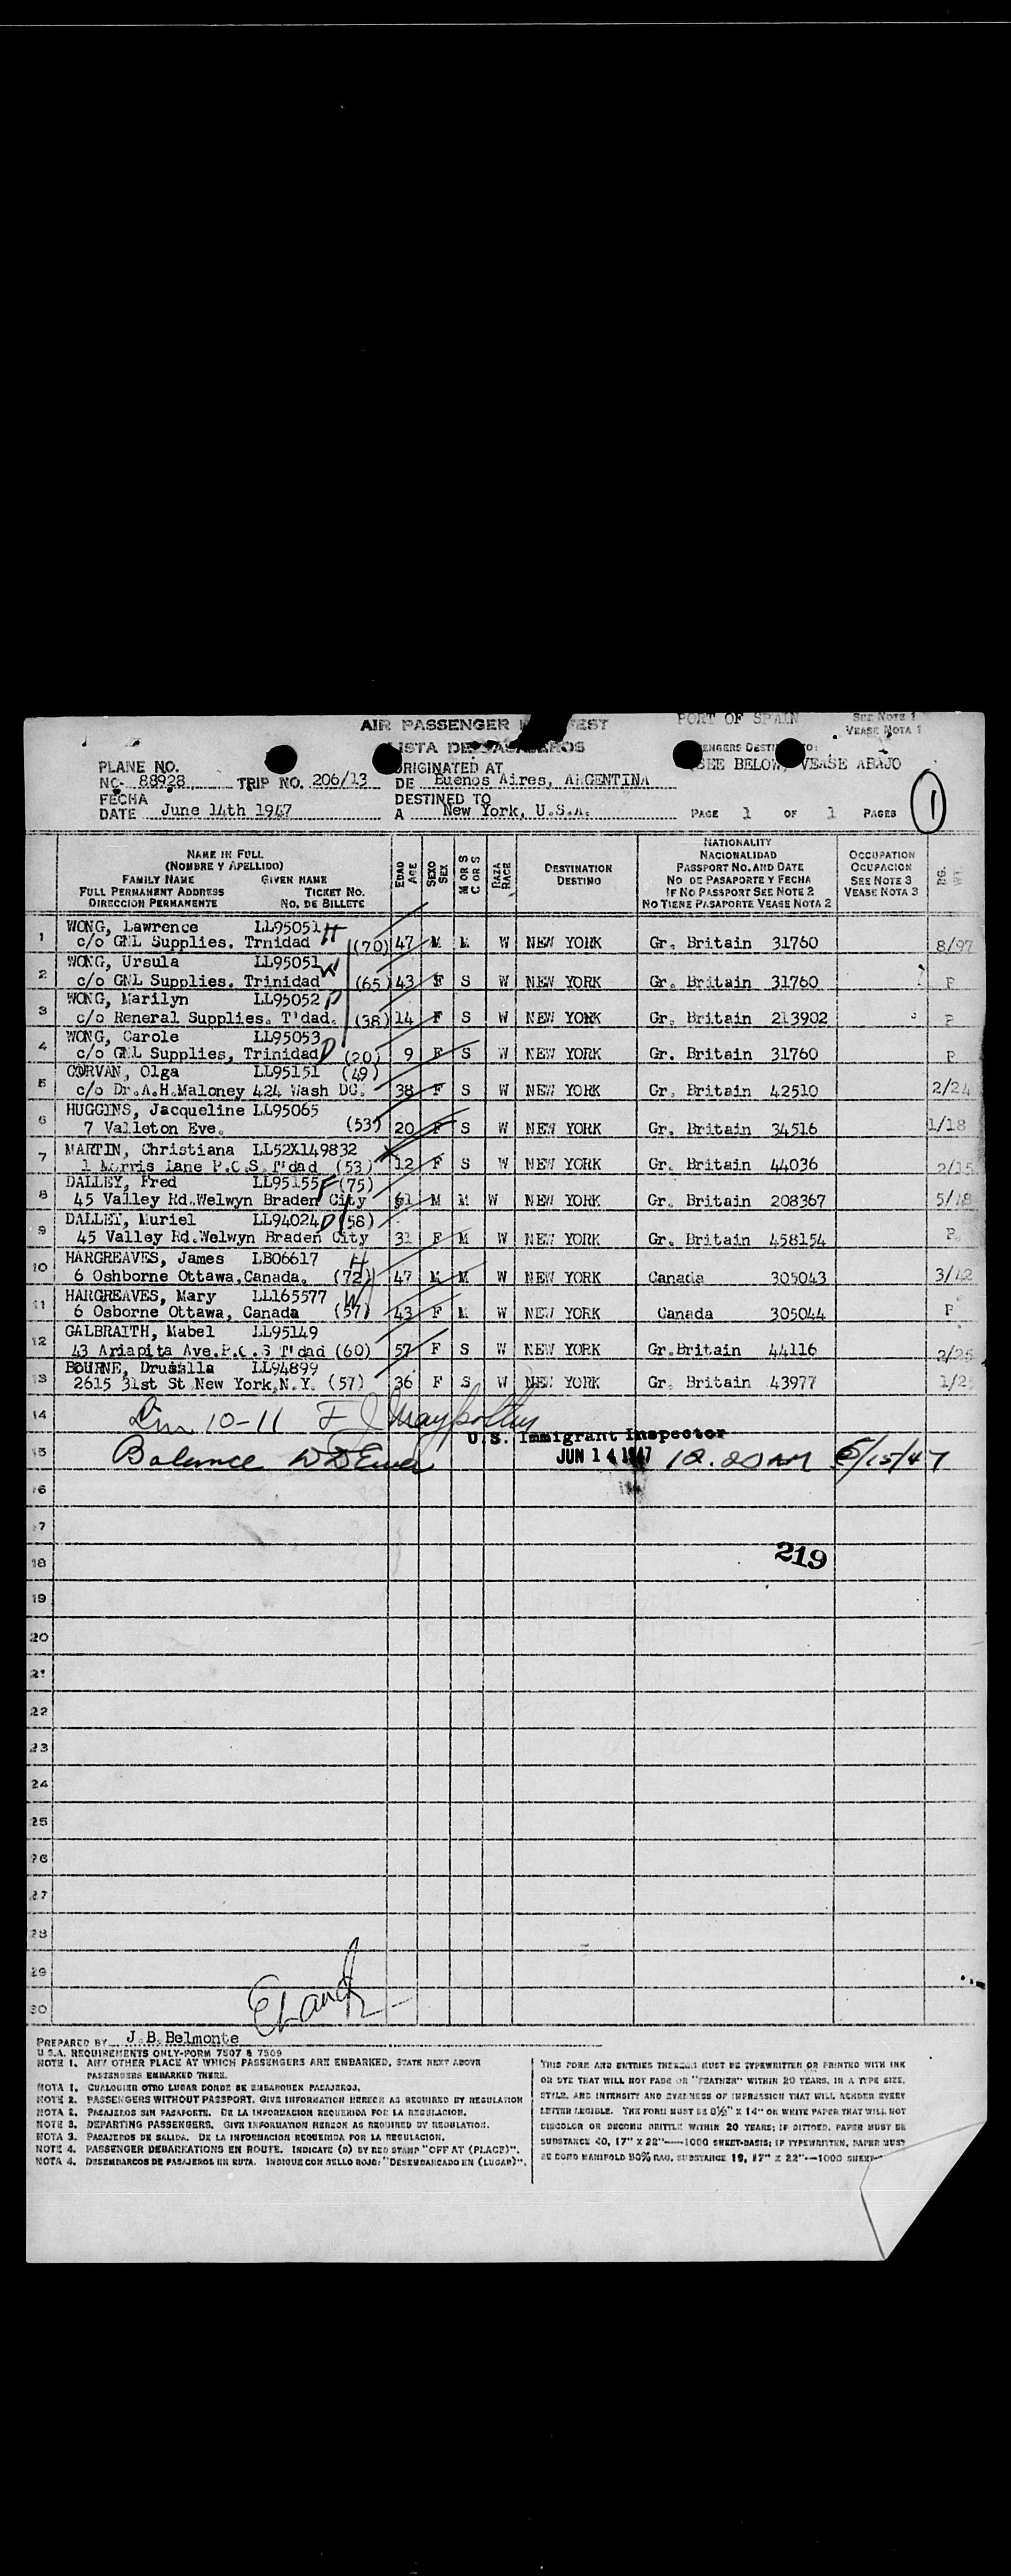 AIR PASSENGER
PORT OF SPAIN
SEE NOTE 1
VEASE NOTA 1
LISTA DE
SEE BELOW, VEASE ABAJO
PLANE NO.
NC- 88928 TRIP NO. 206/13
ORIGINATED AT
DE Buenos Aires, ARGENTINA
FECHA
DATE June 14th 1947
DESTINED TO
A New York, U.S.A.
PAGE 1 OF 1 PAGES
1
NAME IN FULL
(NOMBRE Y APELLIDO)
FAMILY NAME GIVEN NAME
FULL PERMANENT ADDRESS TICKET NO.
DIRECCION PERMANENTE NO. DE BILLETE
EDAD AGE
SEXO SEX
M OR S
C OR S
RAZA RACE
DESTINATION
DESTINO
NATIONALITY
NACIONALIDAD
PASSPORT NO. AND DATE
NO DE PASAPORTE Y FECHA
IF NO PASSPORT SEE NOTE 2
NO TIENE PASAPORTE VEASE NOTA 2
OCCUPATION
OCUPACION
SEE NOTE 3
VEASE NOTA 3
1 WONG, Lawrence LL95051 H
c/o GNL Supplies. Trnidad (70) 47 M M W NEW YORK Gr. Britain 31760 8/97
2 WONG, Ursula LL95051 W
c/o GNL Supplies. Trinidad (65) 43 F S W NEW YORK Gr. Britain 31760 P
3 WONG, Marilyn LL95052 D
c/o Reneral Supplies. T'dad. (38) 14 F S W NEW YORK Gr. Britain 213902 P
4 WONG, Carole LL95053
c/o GNL Supplies, Trinidad D (20) 9 F S W NEW YORK Gr. Britain 31760 P
5 CORVAN, Olga LL95151 (49)
c/o Dr.A.H.Maloney 424 Wash DC. 38 F S W NEW YORK Gr. Britain 42510 2/24
6 HUGGINS, Jacqueline LL95065
7 Valleton Eve. (53) 20 F S W NEW YORK Gr. Britain 34516 1/18
7 MARTIN, Christiana LL52X149832
1 Morris Lane P.O.S T'dad (53) 12 F S W NEW YORK Gr. Britain 44036 2/15
8 DALLEY, Fred LL95155 F (75)
45 Valley Rd.Welwyn Braden City 61 M M W NEW YORK Gr. Britain 208367 5/48
9 DALLEY, Muriel LL94024 D (58)
45 Valley Rd.Welwyn Braden City 31 F M W NEW YORK Gr. Britain 458154 P
10 HARGREAVES, James LB06617 H
6 Oshborne Ottawa,Canada. (72) 47 M M W NEW YORK Canada 305043 3/42
11 HARGREAVES, Mary LL165577 W
6 Osborne Ottawa, Canada (57) 43 F M W NEW YORK Canada 305044 P
12 GALBRAITH, Mabel LL95149
43 Ariapita Ave.P.O.S T'dad (60) 57 F S W NEW YORK Gr.Britain 44116 2/25
13 BOURNE, Drusilla LL94899
2615 31st St New York,N.Y. (57) 36 F S W NEW YORK Gr. Britain 43977 1/25
14 10-11
U.S. Immigrant Inspector
15 Balance JUN 14 1947 12.20 AM 6/15/47
16
17
219
18
19
20
21
22
23
24
25
26
27
28
29
30
PREPARED BY J.B.Belmonte
U.S.A. REQUIREMENTS ONLY-FORM 7507 & 7509
NOTE 1. ANY OTHER PLACE AT WHICH PASSENGERS ARE EMBARKED, STATE NEXT ABOVE
PASSENGERS EMBARKED THERE.
NOTA 1. CUALQUIER OTRO LUGAR DONDE SE EMBARQUEN PASAJEROS.
NOTE 2. PASSENGERS WITHOUT PASSPORT. GIVE INFORMATION HEREON AS REQUIRED BY REGULATION
NOTA 2. PASAJEROS SIN PASAPORTE. DE LA INFORMACION REQUERIDA POR LA REGULACION.
NOTE 3. DEPARTING PASSENGERS. GIVE INFORMATION HEREON AS REQUIRED BY REGULATION.
NOTA 3. PASAJEROS DE SALIDA. DE LA INFORMACION REQUERIDA POR LA REGULACION.
NOTE 4. PASSENGER DEBARKATIONS EN ROUTE. INDICATE (D) BY RED STAMP "OFF AT (PLACE)".
NOTA 4. DESEMBARCOS DE PASAJEROS EN RUTA. INDIQUE CON SELLO ROJO: "DESEMBARCADO EN (LUGAR)".
THIS FORM AND ENTRIES THEREON MUST BE TYPEWRITTEN OR PRINTED WITH INK
OR DYE THAT WILL NOT FADE OR "FEATHER" WITHIN 20 YEARS, IN A TYPE SIZE,
STYLE, AND INTENSITY AND EVENNESS OF IMPRESSION THAT WILL RENDER EVERY
LETTER LEGIBLE. THE FORM MUST BE 8½" X 14" OR WHITE PAPER THAT WILL NOT
DISCOLOR OR BECOME BRITTLE WITHIN 20 YEARS; IF DITTOED, PAPER MUST BE
SUBSTANCE 40, 17" X 22"—1000 SHEET-BASIS; IF TYPEWRITTEN, PAPER MUST
BE BOND MANIFOLD 50% RAG, SUBSTANCE 16, 17" X 22"—1000